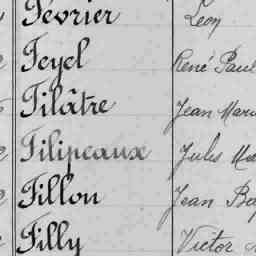 Février Léon
Feyel René Paul
Filâtre Jean Marie
Filipeaux Jules
Fillon Jean
Filly Victor